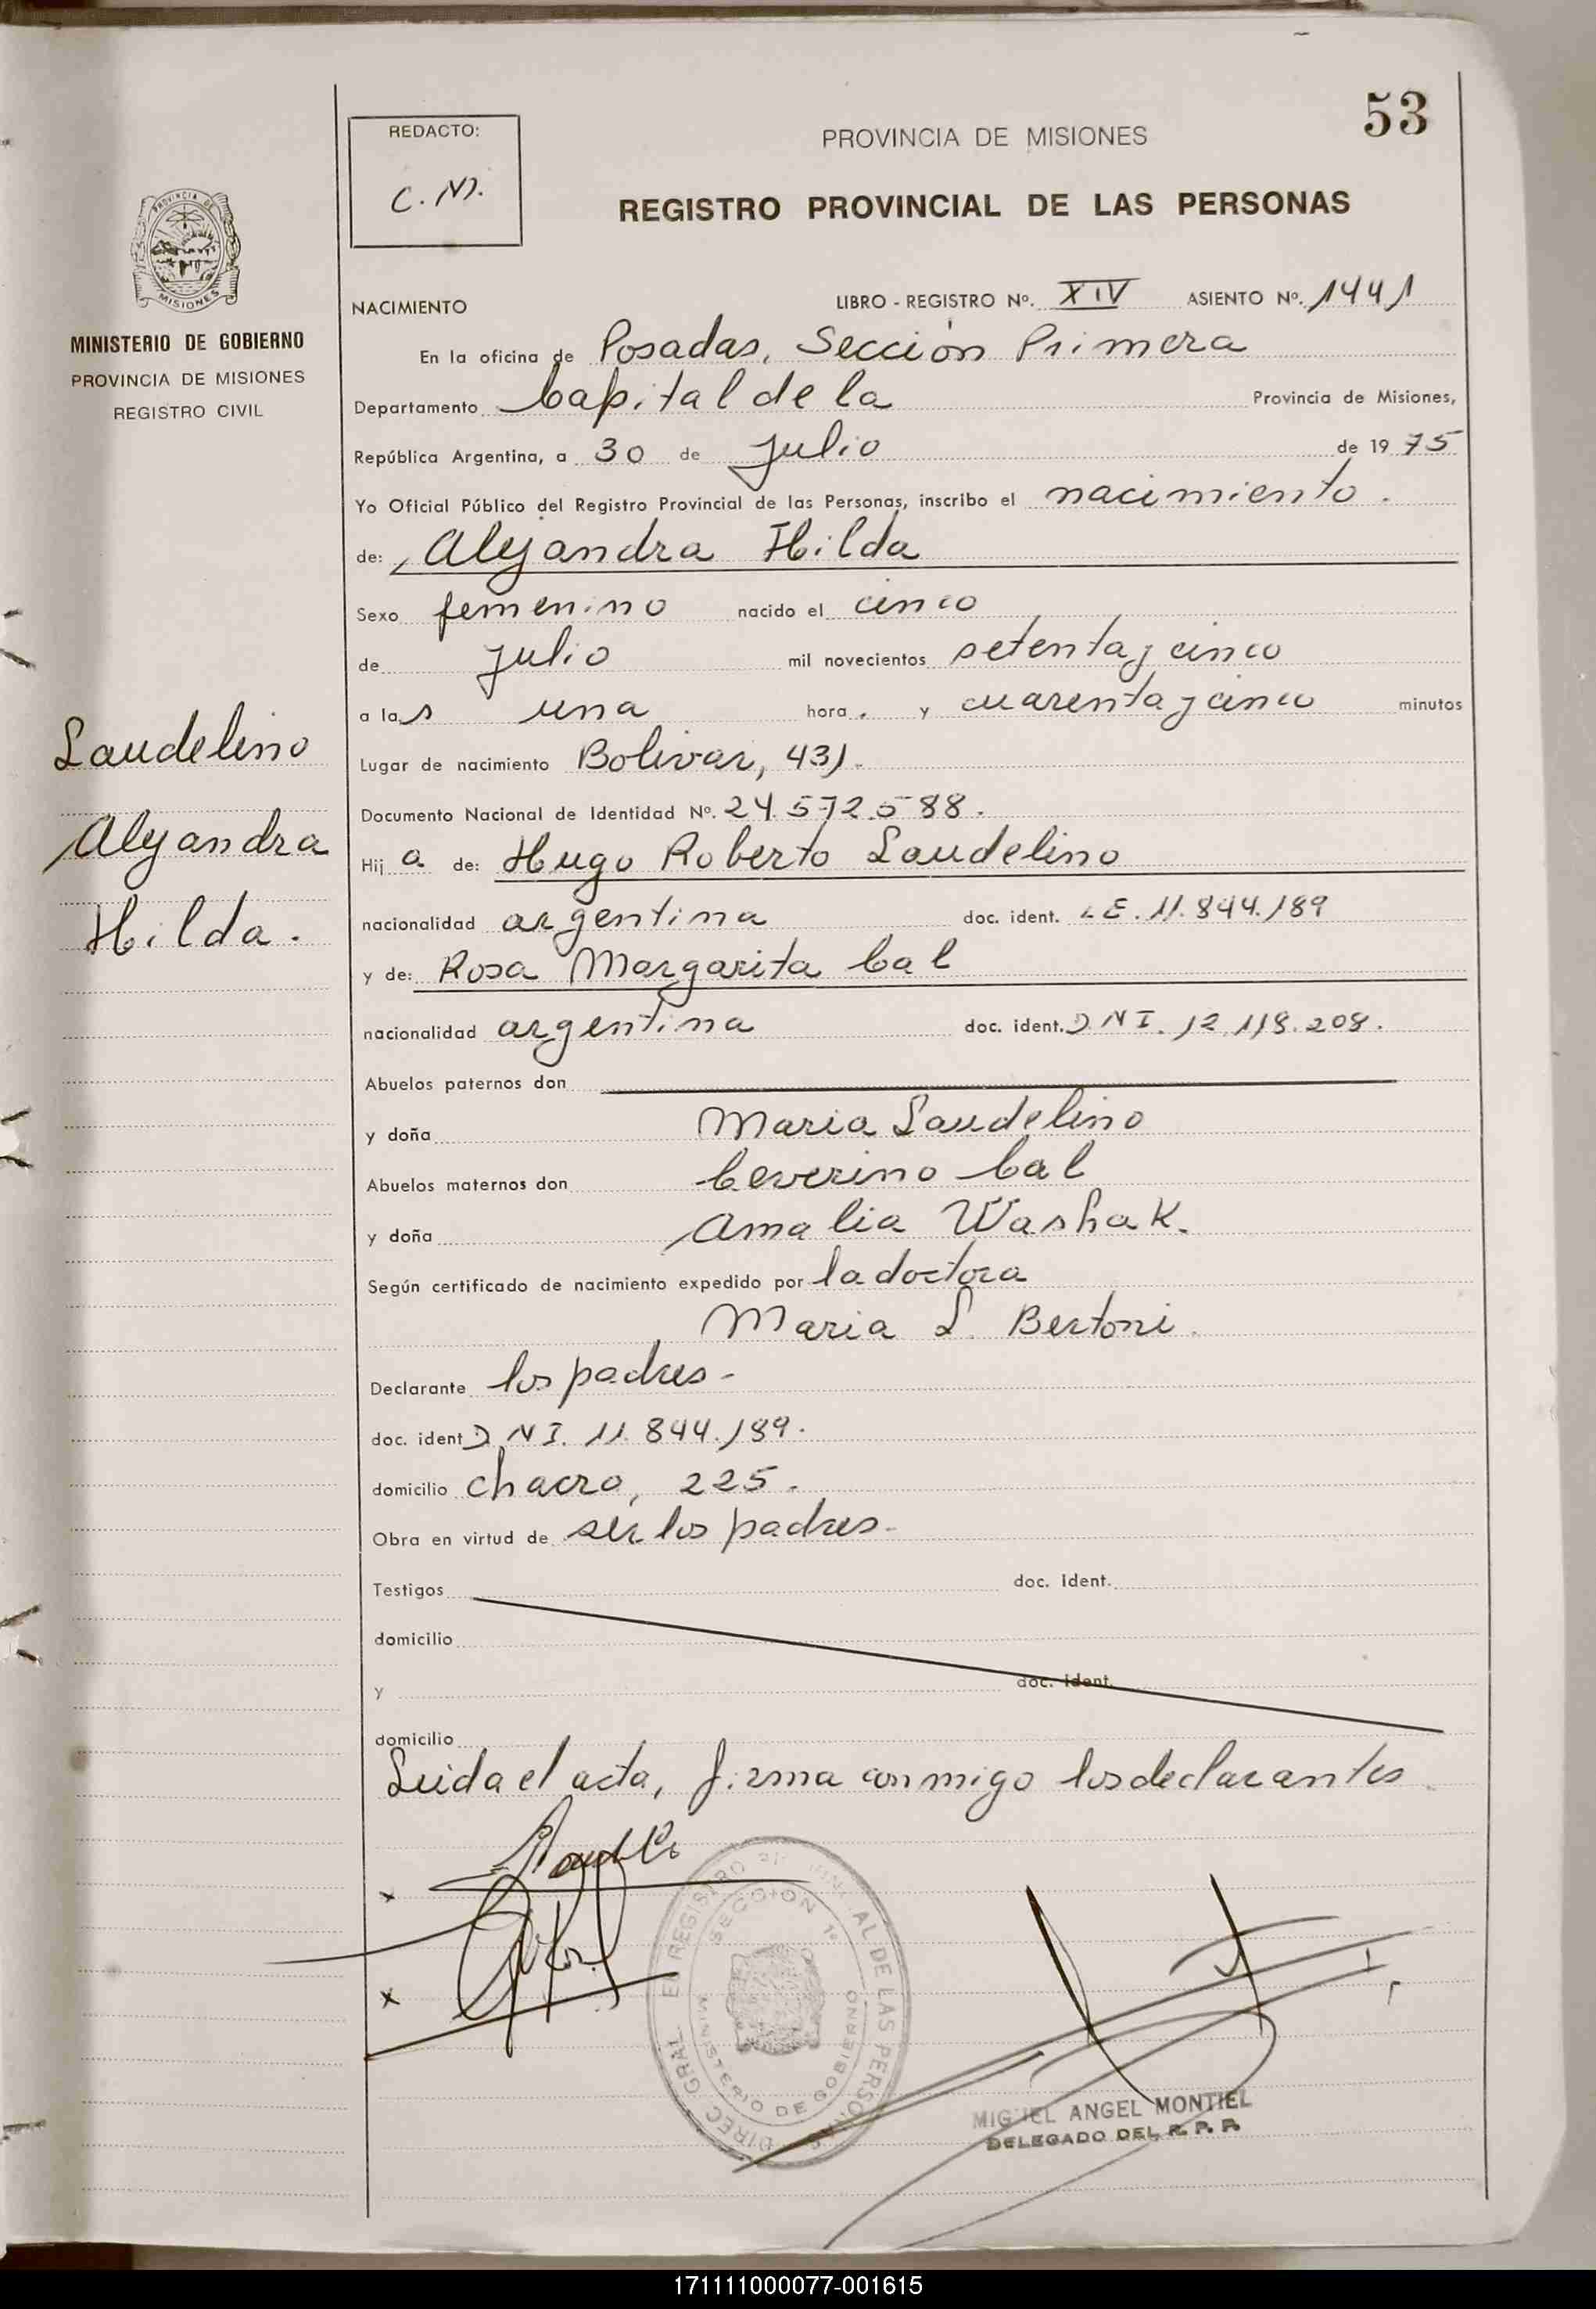 53
REDACTO:
C. M.
PROVINCIA DE MISIONES
REGISTRO PROVINCIAL DE LAS PERSONAS
PROVINCIA DE
MISIONES
MINISTERIO DE GOBIERNO
PROVINCIA DE MISIONES
REGISTRO CIVIL
NACIMIENTO LIBRO - REGISTRO Nº. XIV ASIENTO Nº. 1441
En la oficina de Posadas, Sección Primera
Departamento Capital de la Provincia de Misiones,
República Argentina, a 30 de Julio de 1975
Yo Oficial Público del Registro Provincial de las Personas, inscribo el nacimiento.
de: Alejandra Hilda
Sexo femenino nacido el cinco
de Julio mil novecientos setenta y cinco
a las una hora. y cuarenta y cinco minutos
Laudelino
Alejandra
Hilda.
Lugar de nacimiento Bolivar, 431.
Documento Nacional de Identidad Nº. 24.572.588.
Hija de: Hugo Roberto Laudelino
nacionalidad argentina doc. ident. LE. 11.844.189
y de: Rosa Margarita Cal
nacionalidad argentina doc. ident. DNI. 12.118.208.
Abuelos paternos don
y doña Maria Laudelino
Abuelos maternos don Ceverino Cal
y doña Amalia Washak.
Según certificado de nacimiento expedido por la doctora
Maria L. Bertoni.
Declarante los padres-
doc. ident DNI. 11.844.189.
domicilio chacra, 225.
Obra en virtud de ser los padres-
Testigos doc. ident.
domicilio
y doc. ident.
domicilio
Leida el acta, firma conmigo los declarantes
x
x
DIREC. GRAL. REGISTRO AL DE LAS PERSONAS
SECCION 1ª
MINISTERIO DE GOBIERNO
MIGUEL ANGEL MONTIEL
DELEGADO DEL R. P. P.
171111000077-001615